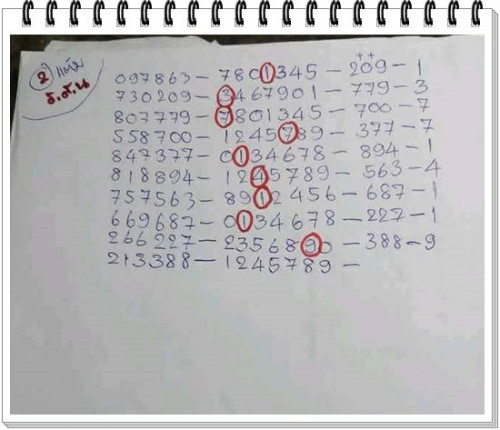 ++
097863 - 7801345 - 209 - 1
730209 - 3467901 - 779 - 3
807779 - 7801345 - 700 - 7
558700 - 1245789 - 377 - 7
847377 - 0134678 - 894 - 1
818894 - 1245789 - 563 - 4
757563 - 8912456 - 687 - 1
669687 - 0134678 - 227 - 1
266227 - 2356890 - 388 - 9
213388 - 1245789 -